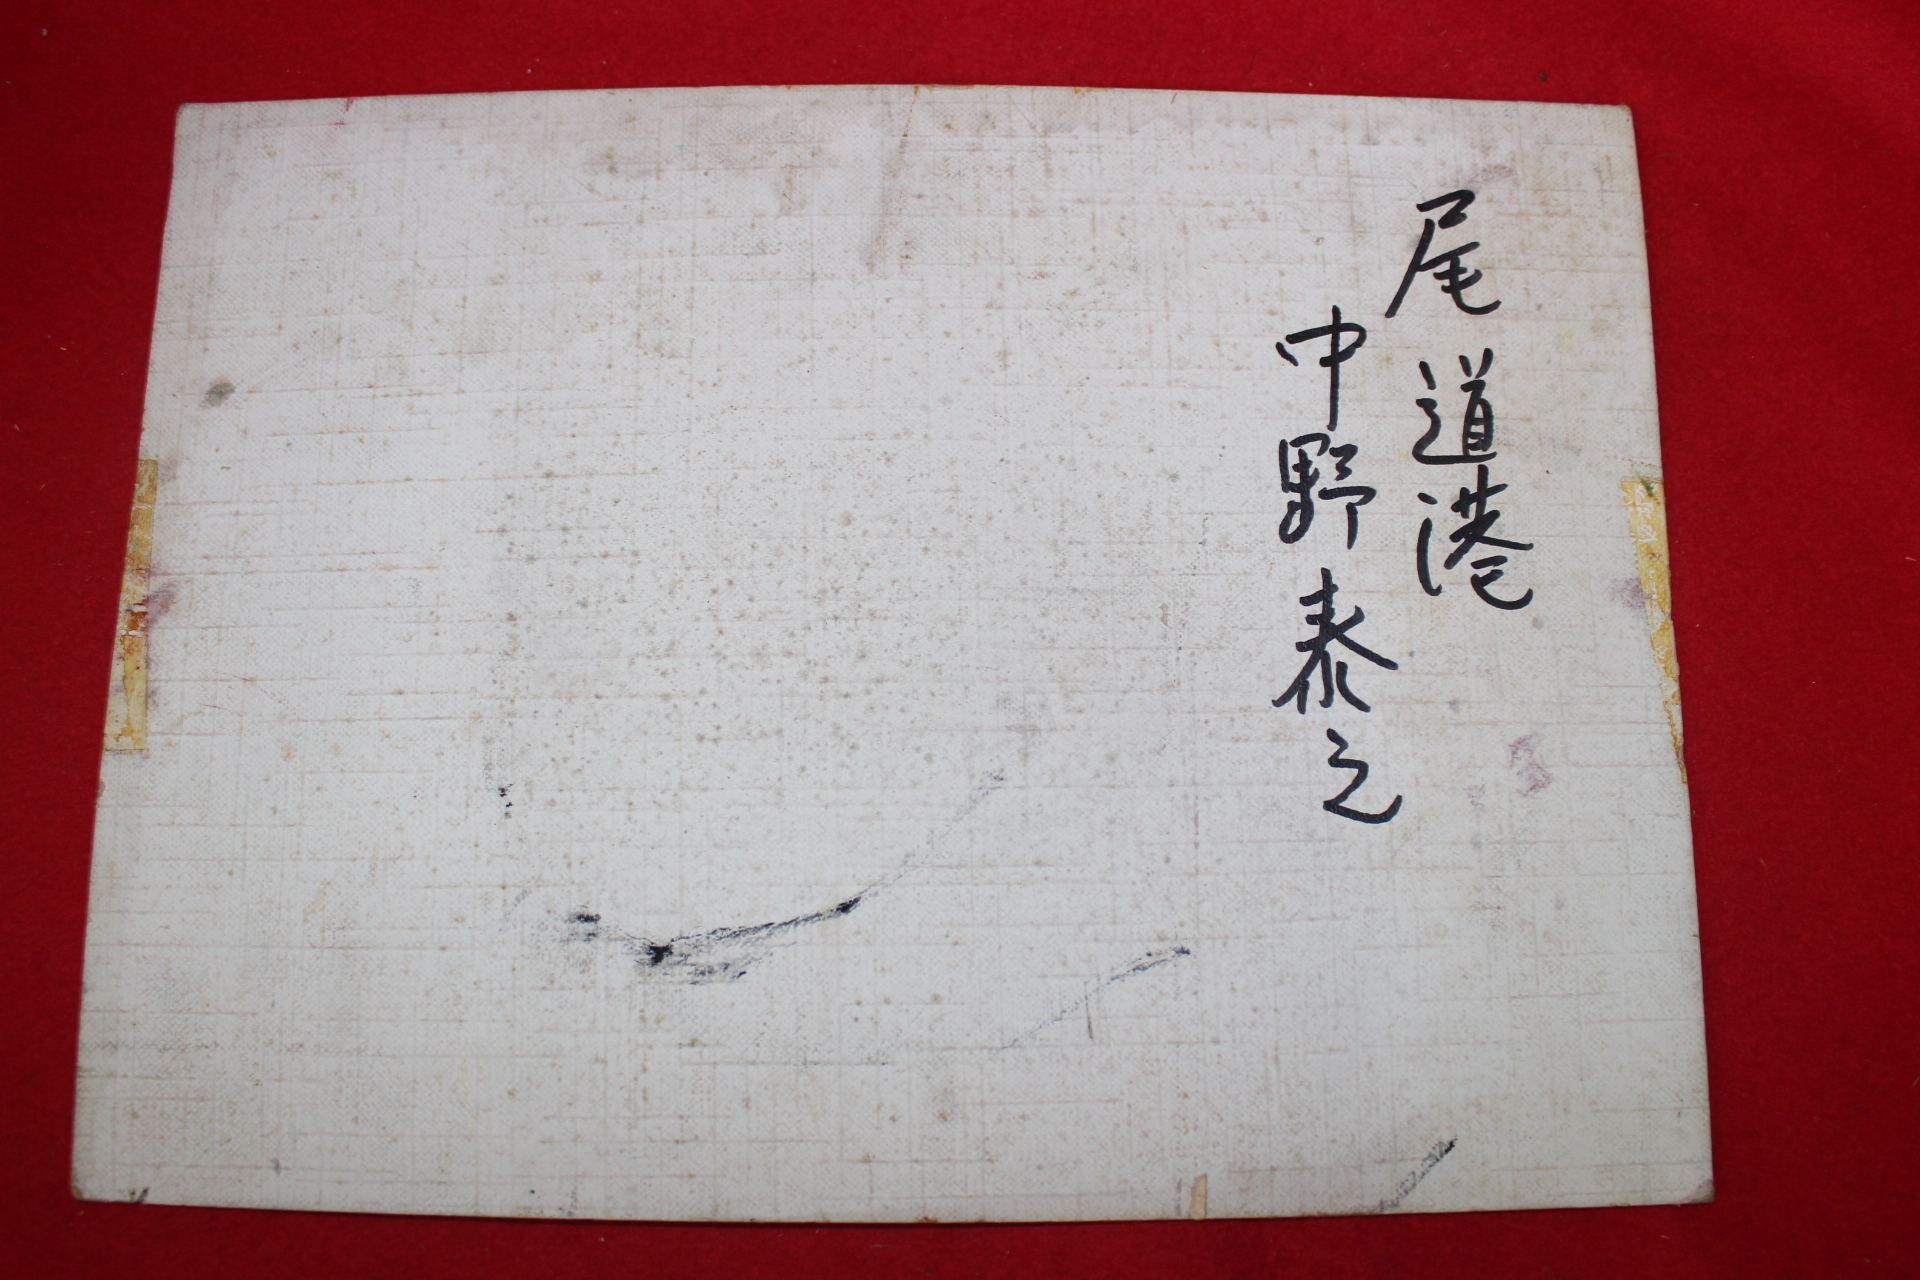 尾道港
中野泰之